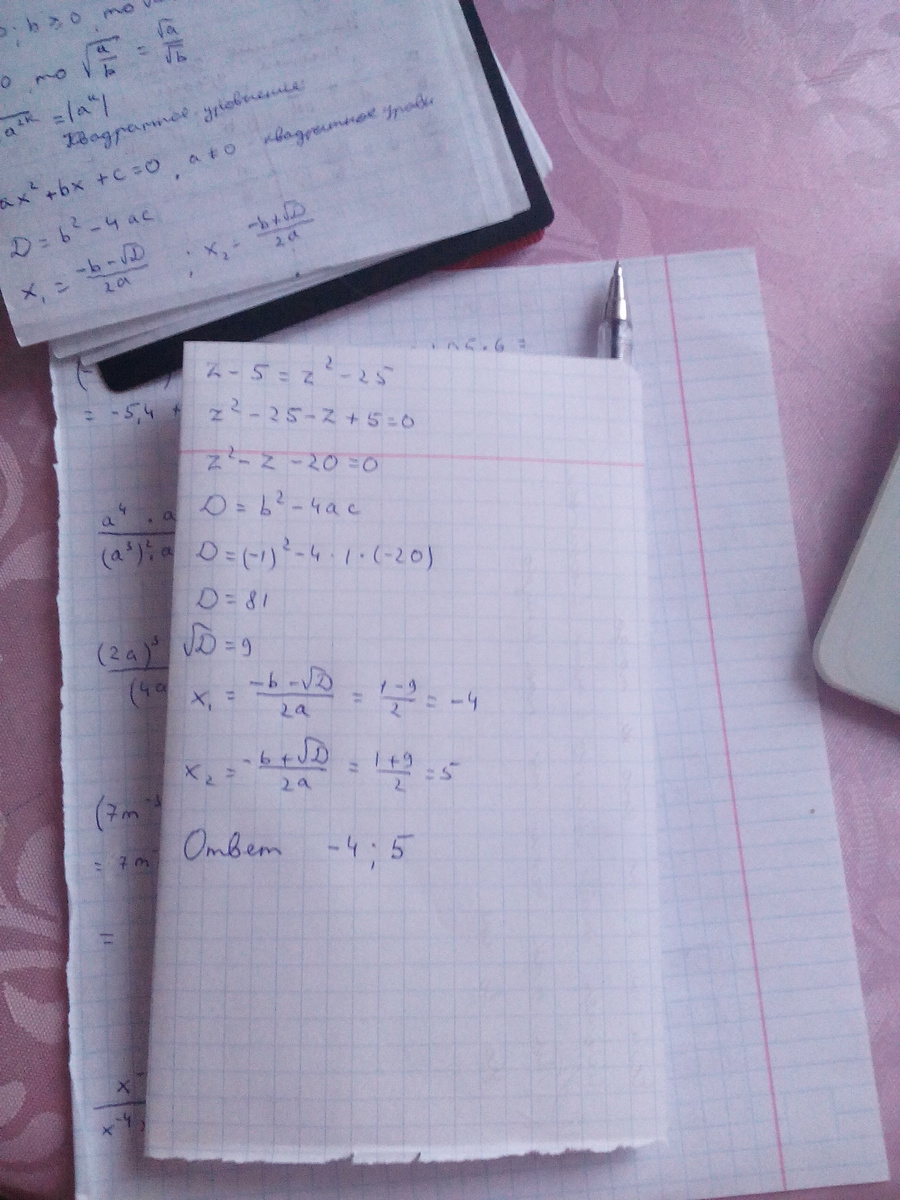 ; b ≥ 0, то
0 то √(a/b) = √a/√b
√(a²ᵏ) = |aᵏ|
Квадратное уровнение
ax² + bx + c = 0, a ≠ 0 квадратное уровн
D = b² - 4ac
x₁ = (-b-√D)/2a ; x₂ = (-b+√D)/2a
= -5,4 +
a⁴ · a
(a³)² · a
(2a)³
(4a
(7m⁻³
= 7m
=
x⁻
x⁻⁴
z - 5 = z² - 25
z² - 25 - z + 5 = 0
z² - z - 20 = 0
D = b² - 4ac
D = (-1)² - 4 · 1 · (-20)
D = 81
√D = 9
x₁ = (-b-√D)/2a = (1-9)/2 = -4
x₂ = (-b+√D)/2a = (1+9)/2 = 5
Ответ -4; 5